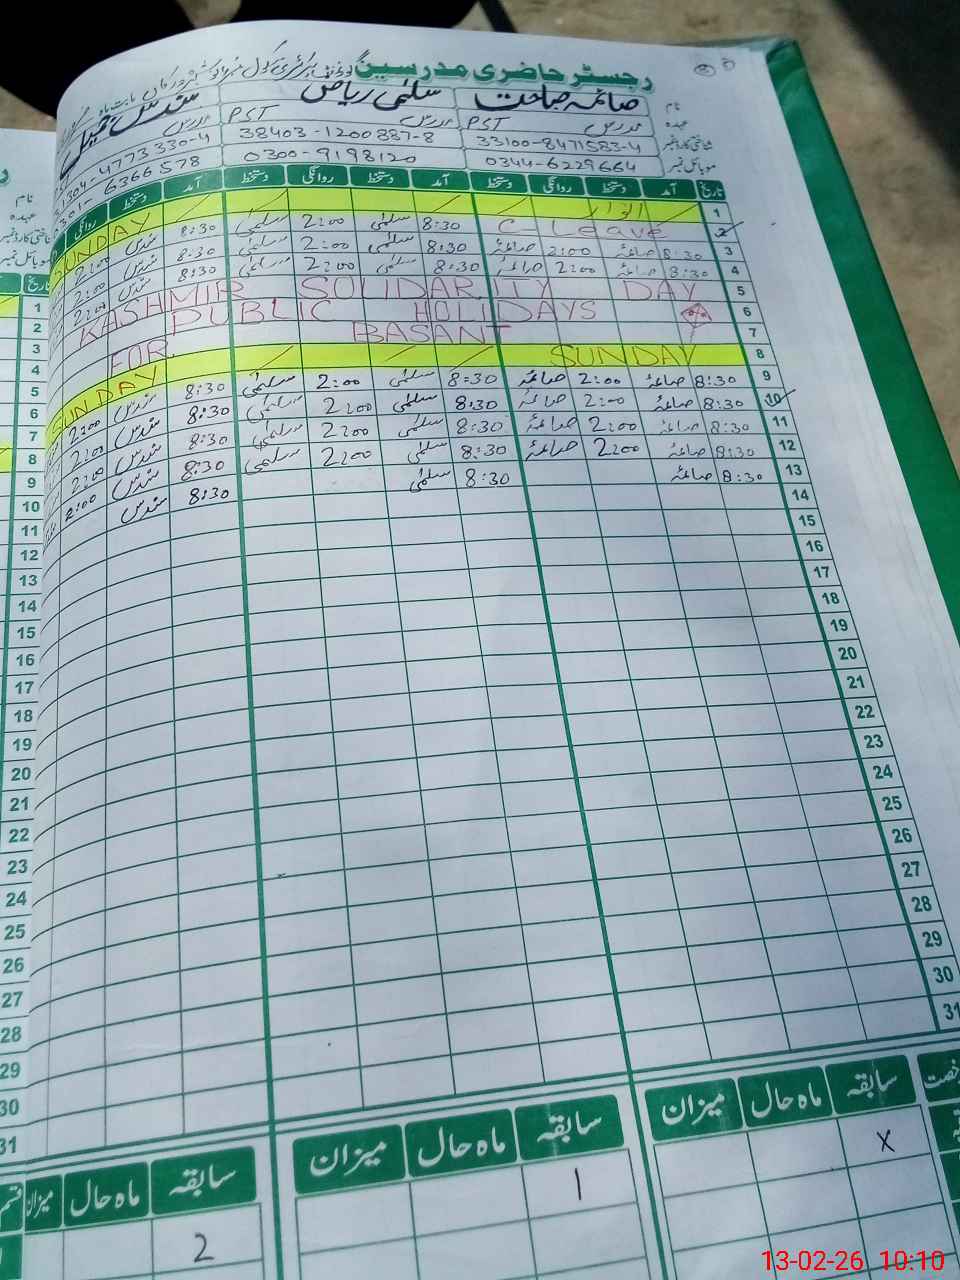 رجسٹر حاضری مدرسین
نام صائمہ صباحت سلمٰی ریاض سندس جمیل
عہدہ مدرس PST مدرس PST مدرس
شناختی کارڈ نمبر 33100-8471583-4 38403-1200887-8 31304-4773330-4
موبائل نمبر 0344-6229664 0300-9198120 0301-6366578
تاریخ آمد دستخط روانگی دستخط آمد دستخط روانگی دستخط آمد دستخط روانگی
1 اتوار SUNDAY
2 C-Leave 8:30 سلمٰی 2:00 سلمٰی 8:30 سندس 2:00
3 8:30 صائمہ 2:00 صائمہ 8:30 سلمٰی 2:00 سلمٰی 8:30 سندس 2:00
4 8:30 صائمہ 2:00 صائمہ 8:30 سلمٰی 2:00 سلمٰی 8:30 سندس 2:00
5 KASHMIR SOLIDARITY DAY
6 PUBLIC HOLIDAYS
7 FOR BASANT
8 SUNDAY SUNDAY
9 8:30 صائمہ 2:00 صائمہ 8:30 سلمٰی 2:00 سلمٰی 8:30 سندس 2:00
10 8:30 صائمہ 2:00 صائمہ 8:30 سلمٰی 2:00 سلمٰی 8:30 سندس 2:00
11 8:30 صائمہ 2:00 صائمہ 8:30 سلمٰی 2:00 سلمٰی 8:30 سندس 2:00
12 8:30 صائمہ 2:00 صائمہ 8:30 سلمٰی 2:00 سلمٰی 8:30 سندس 2:00
13 8:30 صائمہ 8:30 سلمٰی 8:30 سندس
14
15
16
17
18
19
20
21
22
23
24
25
26
27
28
29
30
31
سابقہ ماہ حال میزان سابقہ ماہ حال میزان سابقہ ماہ حال میزان
X 1 2
نام
عہدہ
شناختی کارڈ نمبر
موبائل نمبر
تاریخ
1
2
3
4
5
6
7
8
9
10
11
12
13
14
15
16
17
18
19
20
21
22
23
24
25
26
27
28
29
30
31
قسم
13-02-26 10:10